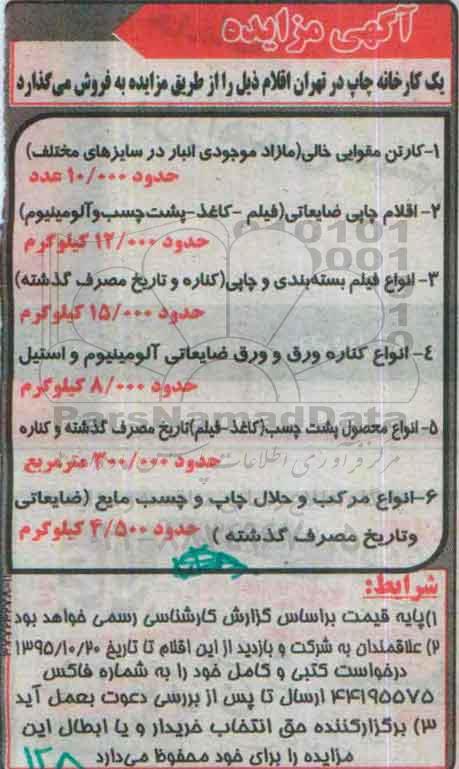 آگهی مزایده
یک کارخانه چاپ در تهران اقلام ذیل را از طریق مزایده به فروش می‌گذارد
۱-کارتن مقوایی خالی(مازاد موجودی انبار در سایزهای مختلف)
حدود ۱۰/۰۰۰ عدد
۲- اقلام چاپی ضایعاتی(فیلم -کاغذ-پشت‌چسب‌وآلومینیوم)
حدود ۱۲/۰۰۰ کیلوگرم
۳- انواع فیلم بسته‌بندی و چاپی(کناره و تاریخ مصرف گذشته)
حدود ۱۵/۰۰۰ کیلوگرم
٤- انواع کناره ورق و ورق ضایعاتی آلومینیوم و استیل
حدود ۸/۰۰۰ کیلوگرم
ParsNamadData
۵- انواع محصول پشت چسب(کاغذ-فیلم)تاریخ مصرف گذشته و کناره
حدود ۳۰۰/۰۰۰ مترمربع
مرکز فرآوری اطلاعات
۶-انواع مرکب و حلال چاپ و چسب مایع (ضایعاتی
وتاریخ مصرف گذشته ) حدود ۴/۵۰۰ کیلوگرم
شرایط:
۱)پایه قیمت براساس گزارش کارشناسی رسمی خواهد بود
۲) علاقمندان به شرکت و بازدید از این اقلام تا تاریخ ۱۳۹۵/۱۰/۲۰
درخواست کتبی و کامل خود را به شماره فاکس
۴۴۱۹۵۵۷۵ ارسال تا پس از بررسی دعوت بعمل آید
۳) برگزارکننده حق انتخاب خریدار و یا ابطال این
مزایده را برای خود محفوظ می‌دارد
۱۲۸